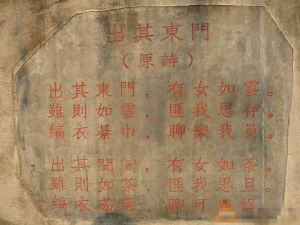 出其東門
（原詩）
出其東門，有女如雲。
雖則如雲，匪我思存。
縞衣綦巾，聊樂我員。
出其闉闍，有女如荼。
雖則如荼，匪我思且。
縞衣茹藘，聊可